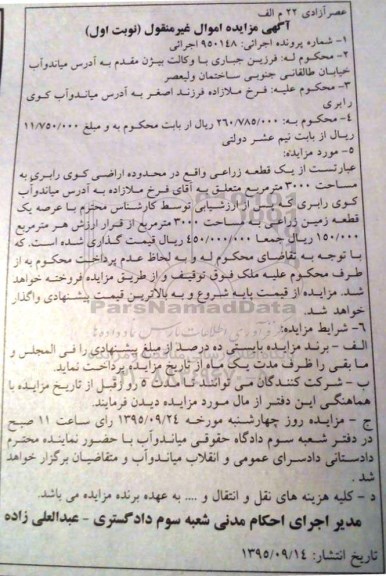 عصرآزادی ۲۲ م الف
آگهی مزایده اموال غیرمنقول (نوبت اول)
۱- شماره پرونده اجرائی: ۹۵۰۱۴۸ اجرائی
۲- محکوم له: فرزین جباری با وکالت بیژن مقدم به آدرس میاندوآب
خیابان طالقانی جنوبی ساختمان ولیعصر
۳- محکوم علیه: فرخ ملازاده فرزند اصغر به آدرس میاندوآب کوی
رابری
۴- محکوم به: ۲۶۰/۷۸۵/۰۰۰ ریال از بابت محکوم به و مبلغ ۱۱/۷۵۰/۰۰۰
ریال از بابت نیم عشر دولتی
۵- مورد مزایده:
عبارتست از یک قطعه زراعی واقع در محدوده اراضی کوی رابری به
مساحت ۳۰۰۰ مترمربع متعلق به آقای فرخ ملازاده به آدرس میاندوآب
کوی رابری که پس از ارزشیابی توسط کارشناس محترم با عرصه یک
قطعه زمین زراعی به مساحت ۳۰۰۰ مترمربع از قرار ارزش هر مترمربع
۱۵۰/۰۰۰ ریال جمعا ۴۵۰/۰۰۰/۰۰۰ ریال قیمت گذاری شده است. که
با توجه به تقاضای محکوم له و به لحاظ عدم پرداخت محکوم به از
طرف محکوم علیه ملک فوق توقیف و از طریق مزایده فروخته خواهد
شد. مزایده از قیمت پایه شروع و به بالاترین قیمت پیشنهادی واگذار
خواهد شد.
ParsNamadData
۶- شرایط مزایده:
الف - برنده مزایده بایستی ده درصد از مبلغ پیشنهادی را فی المجلس و
ما بقی را ظرف مدت یک ماه از تاریخ مزایده پرداخت نماید.
ب - شرکت کنندگان می توانند تا مدت ۵ روز قبل از تاریخ مزایده با
هماهنگی این دفتر از مال مورد مزایده دیدن فرمایند.
ج - مزایده روز چهارشنبه مورخه ۱۳۹۵/۰۹/۲۴ رای ساعت ۱۱ صبح
در دفتر شعبه سوم دادگاه حقوقی میاندوآب با حضور نماینده محترم
دادستانی دادسرای عمومی و انقلاب میاندوآب و متقاضیان برگزار خواهد
شد.
د - کلیه هزینه های نقل و انتقال و .... به عهده برنده مزایده می باشد.
مدیر اجرای احکام مدنی شعبه سوم دادگستری - عبدالعلی زاده
تاریخ انتشار: ۱۳۹۵/۰۹/۱۴